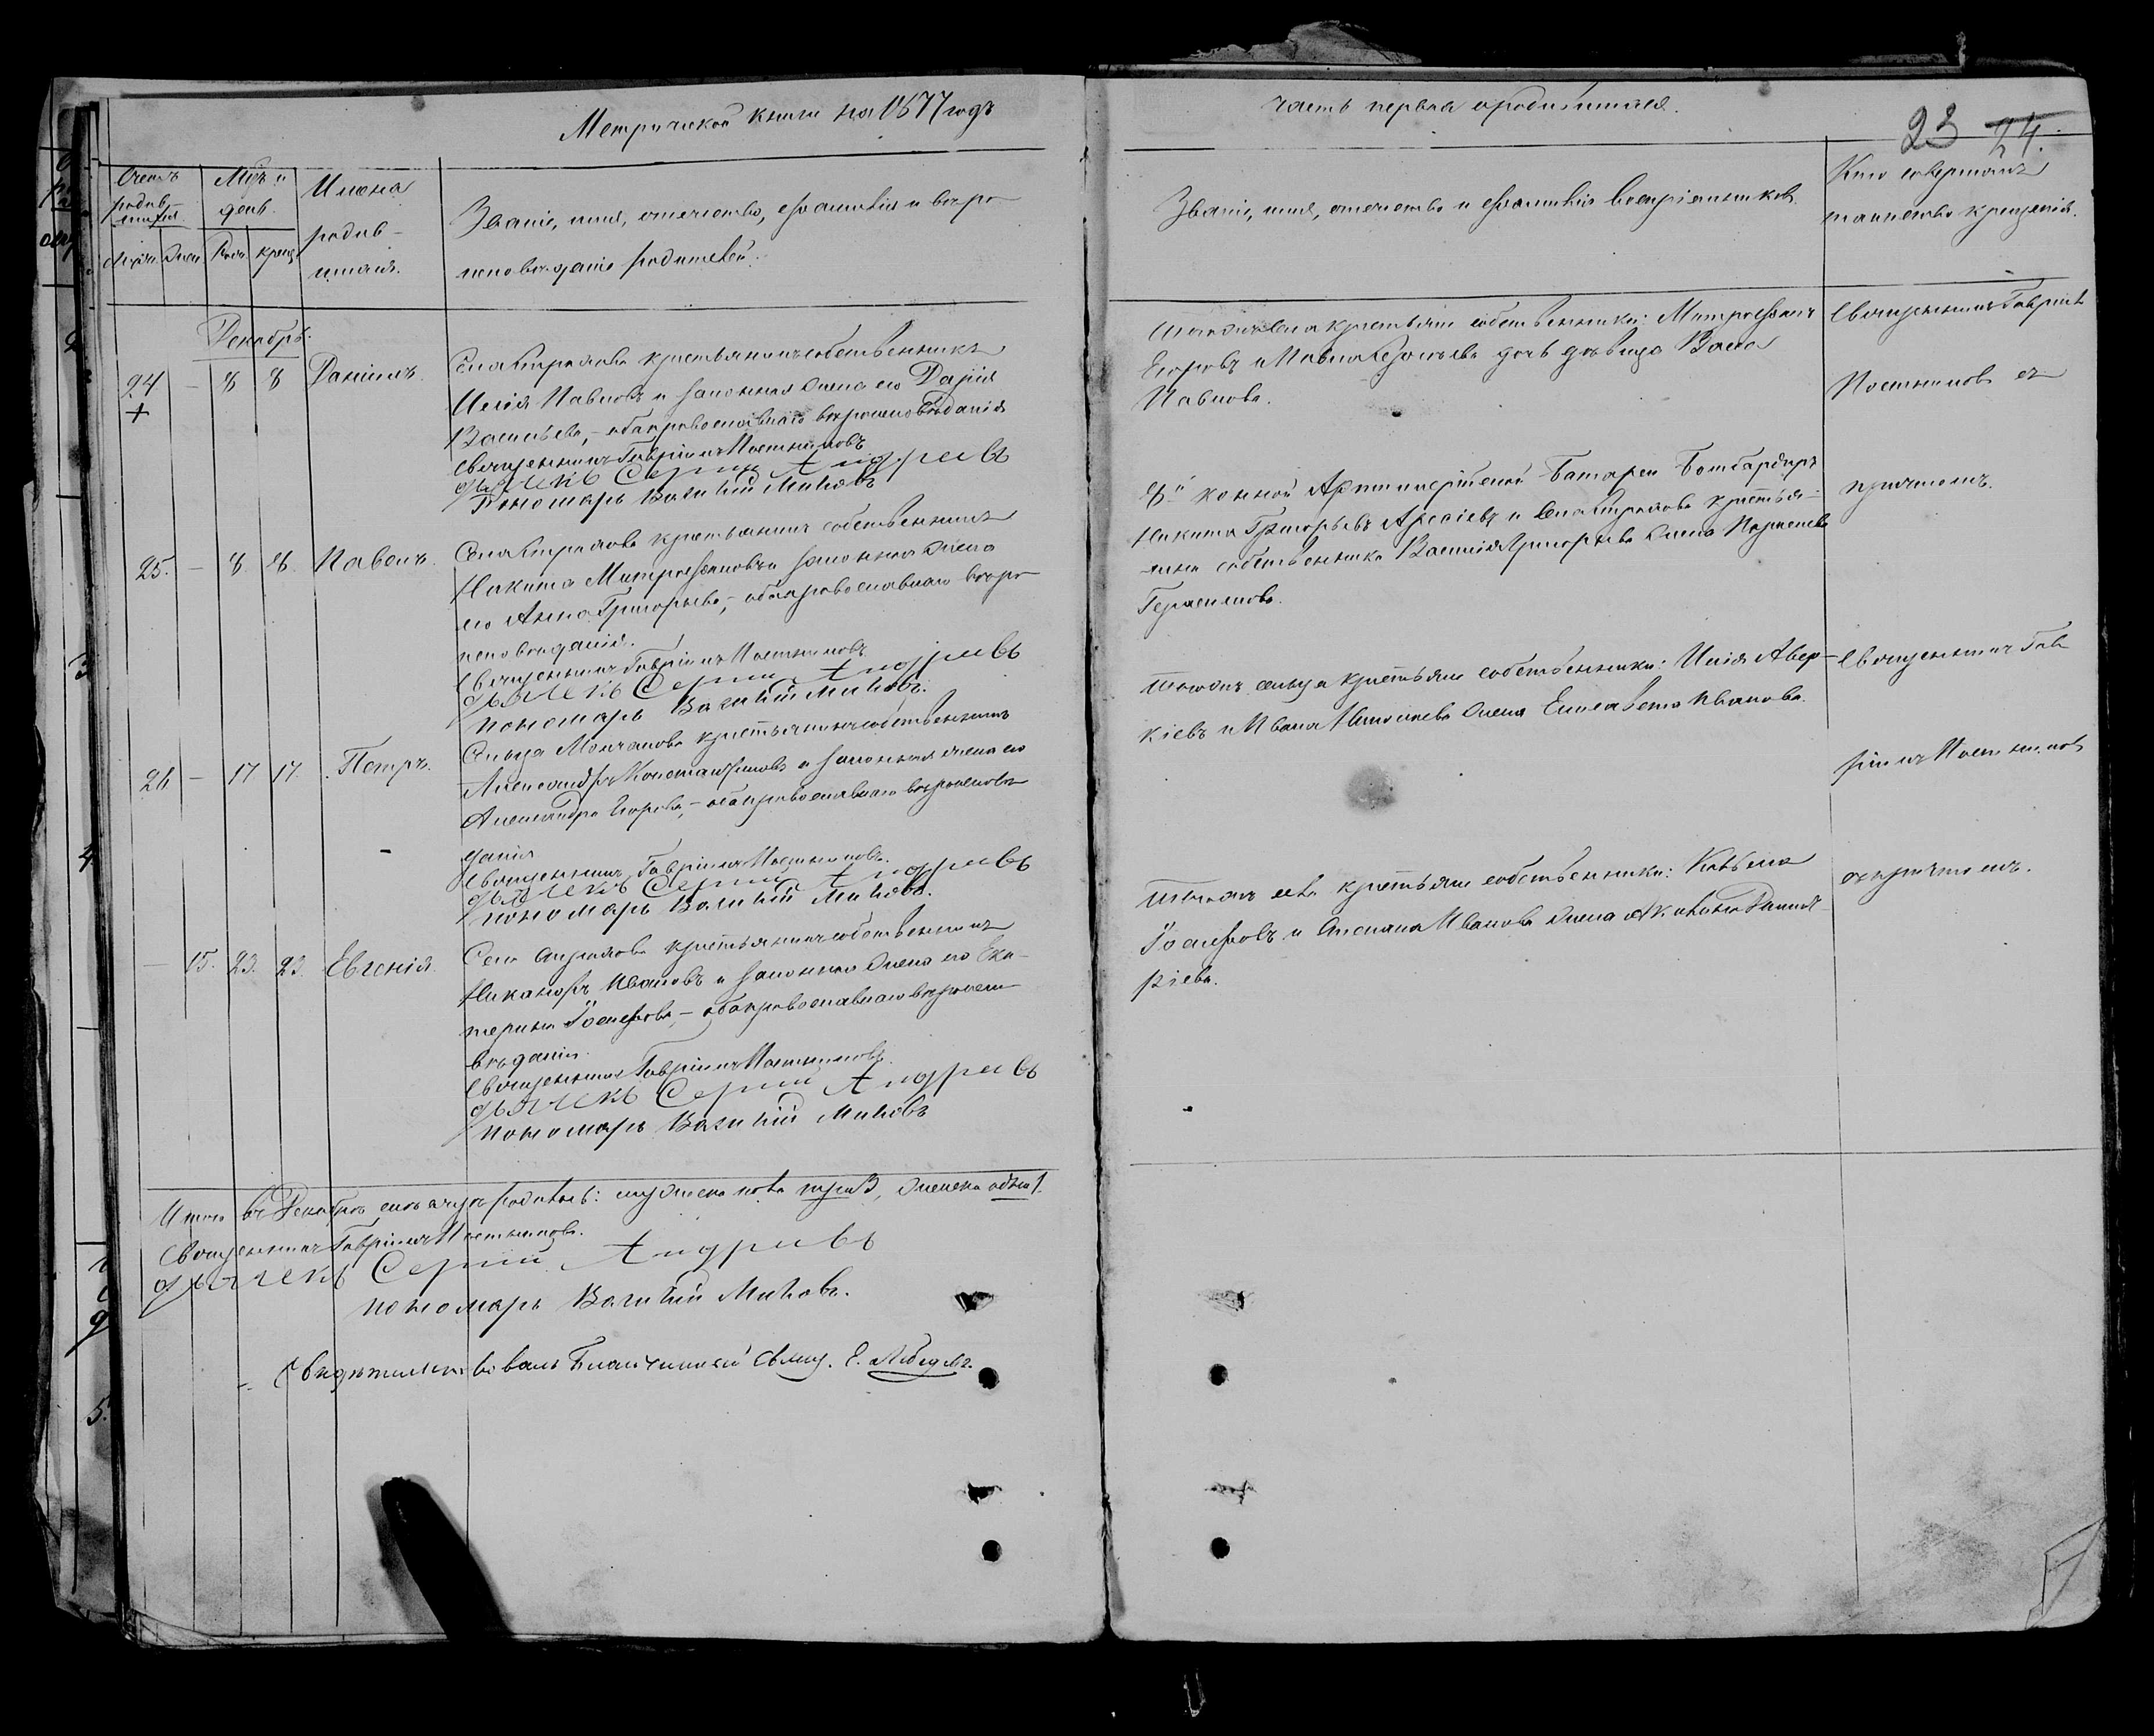 Метрической книги на 1877 годъ
часть первая о родившихся.
23 24.
Счетъ родив-
шихся.
Мѣс. и
день.
Имена
родив-
шихся.
Званіе, имя, отчество, фамилія и вѣро-
исповѣданіе родителей.
Званіе, имя, отчество и фамилія воспріемниковъ.
Кто совершалъ
таинство крещенія.
Декабрь.
24 — 8 8 Даніилъ.
Села крестьянинъ собственникъ
Илія Павловъ и законная жена его Дарія
Васильева, – оба православнаго вѣроисповѣданія
Священникъ Гавріилъ Постниковъ
дьячекъ Сергій Андреевъ
Пономарь Василій Миловъ
Тогоже села крестьяне собственники: Митрофанъ
Егоровъ и дочь дѣвица
Павлова.
Священникъ Гавріилъ
Постниковъ съ
причтомъ.
25. — 8. 8. Павелъ.
Села крестьянинъ собственникъ
Никита Митрофановъ и законная жена
его Анна Григорьева, – оба православнаго вѣро-
исповѣданія.
Священникъ Гавріилъ Постниковъ
дьячекъ Сергій Андреевъ
пономарь Василій Миловъ.
8й конной Артиллерійской Батареи Бомбардиръ
Никита Григорьевъ и села крестья-
нина собственника Василія Григорьева жена
Герасимова.
26 — 17 17. Петръ.
Сельца Молчанова крестьянинъ собственникъ
Александръ Константиновъ и законная жена его
Александра Егорова, – оба православнаго вѣроисповѣ-
данія
Священникъ Гавріилъ Постниковъ.
дьячекъ Сергій Андреевъ
пономарь Василій Миловъ.
Тогожъ сельца крестьяне собственники: Илія Авер-
кіевъ и Ивана жена Елисавета Иванова.
Священникъ Гав-
ріилъ Постниковъ
съ причтомъ.
— 15. 23. 23. Евгенія.
Села крестьянинъ собственникъ
Никаноръ Ивановъ и законная жена его Ека-
терина Іосифова, – оба православнаго вѣроиспо-
вѣданія.
Священникъ Гавріилъ Постниковъ.
дьячекъ Сергій Андреевъ
пономарь Василій Миловъ
Тогожъ села крестьяне собственники: Козьма
Іосифовъ и Ивановa жена
ріева.
Итого въ Декабрѣ мѣсяцѣ родилось: мужеска пола три 3, женска одна 1.
Священникъ Гавріилъ Постниковъ.
дьячекъ Сергій Андреевъ
пономарь Василій Миловъ.
Свидѣтельствовалъ Благочинный Свящ. Лебедевъ.